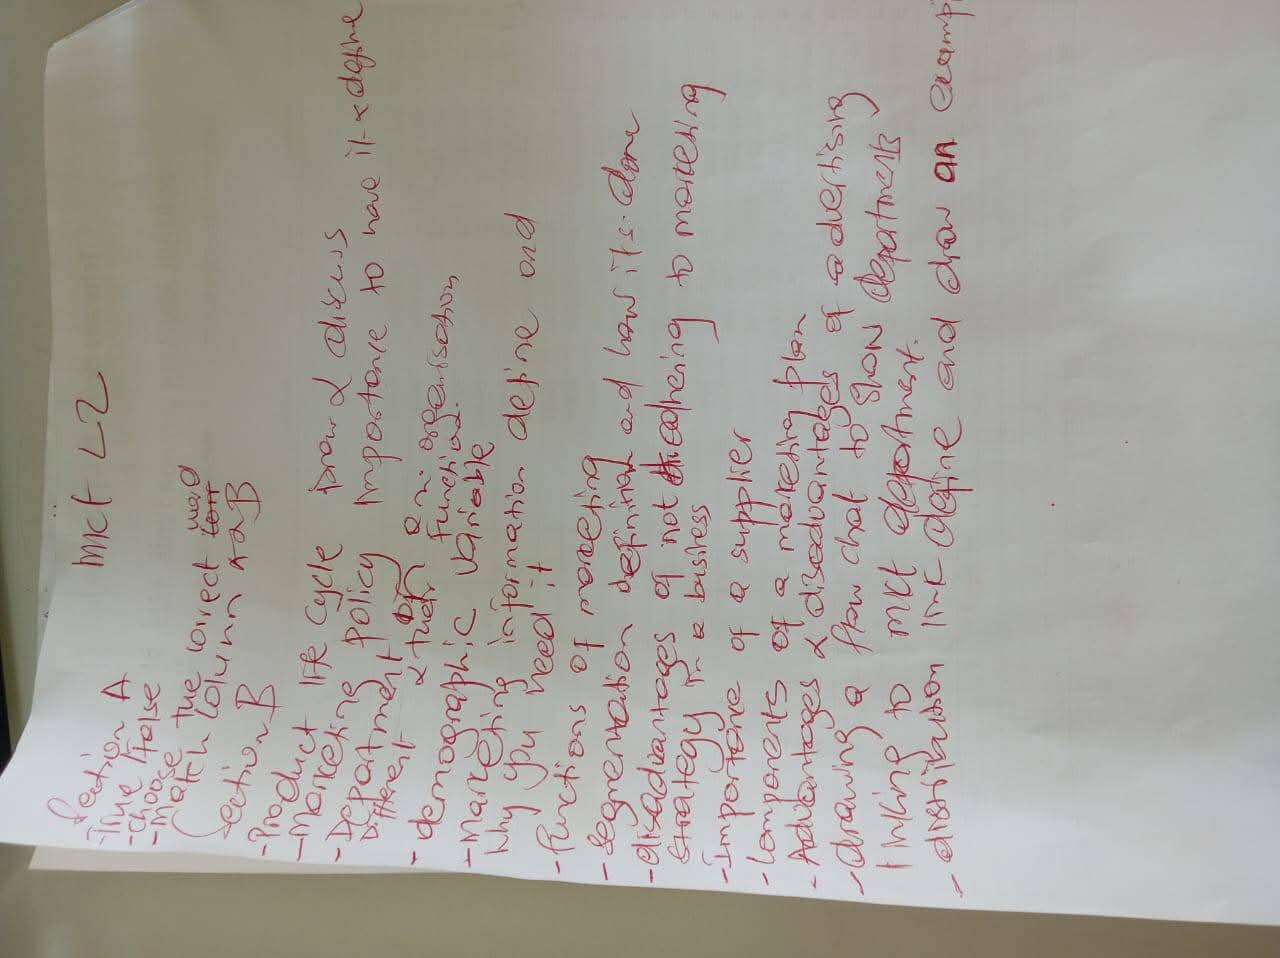 mct L2
Section A
- True false
- choose the correct word
- Match column A & B
Section B
- Product life cycle Draw & discus
- Marketing policy importance to have it & define
- Department of an organisation
Different & their function.
- demographic variable
- Marketing information define and
why you need it
- Functions of marketing
- segmentation defining and how its done
- disadvantages of not adhering to marketing
strategy in a business
- importance of a supplier
- components of a marketing plan
- Advantages & disadvantages of advertising
- drawing a flow chat to show departments
linking to mkt department.
- distribution link define and draw an